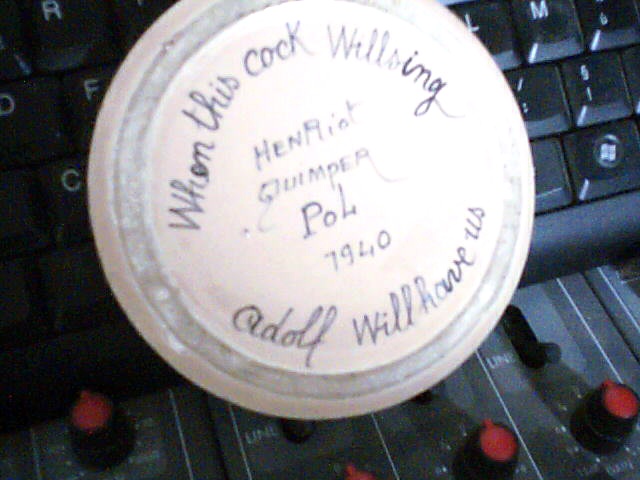 When this cock Will sing
HENRiot
QUIMPER
Pol
1940
adolf Will have us
R
D
F
C
L
M
LINE
LINE